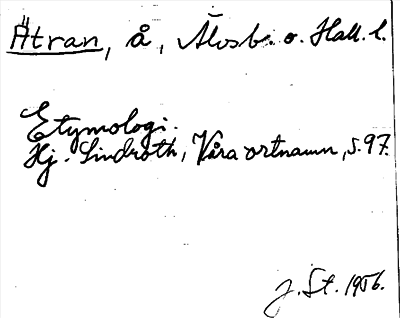 Ätran, å, Älvsb. o. Hall. l.
Etymologi.
Hj. Lindroth, Våra ortnamn, s. 97.
J. St. 1956.